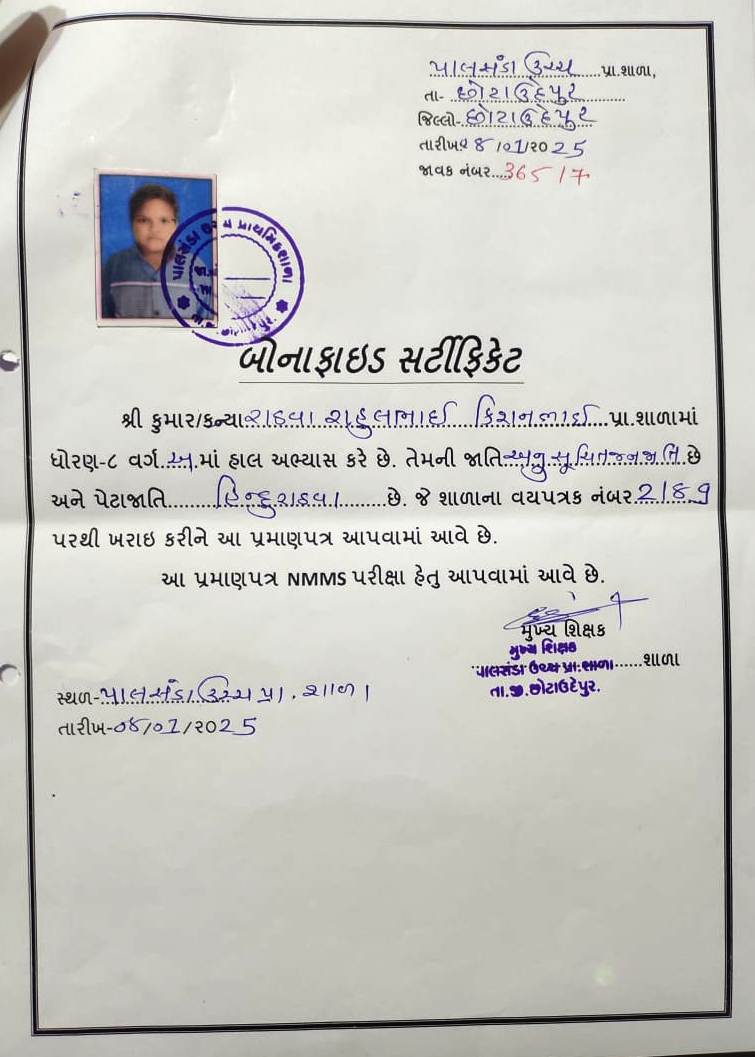 પાલસંડા ઉચ્ચ પ્રા.શાળા,
તા- છોટાઉદેપુર
જિલ્લો- છોટાઉદેપુર
તારીખ ૦૪/૦1/૨૦૨5
જાવક નંબર....365/7
પાલસંડા ઉચ્ચ પ્રાથમિક શાળા
બોનાફાઇડ સર્ટીફિકેટ
શ્રી કુમાર/કન્યા રાઠવા રાહુલભાઈ કિશનભાઈ પ્રા.શાળામાં
ધોરણ-૮ વર્ગ.અ.માં હાલ અભ્યાસ કરે છે. તેમની જાતિ અનુસૂચિતજનજાતિ છે
અને પેટાજાતિ હિન્દુરાઠવા છે. જે શાળાના વયપત્રક નંબર
પરથી ખરાઇ કરીને આ પ્રમાણપત્ર આપવામાં આવે છે.
આ પ્રમાણપત્ર NMMS પરીક્ષા હેતુ આપવામાં આવે છે.
મુખ્ય શિક્ષક
મુખ્ય શિક્ષક
પાલસંડા ઉચ્ચ પ્રા.શાળા......શાળા
તા.જી.છોટાઉદેપુર.
સ્થળ-પાલસંડા ઉચ્ચ પ્રા. શાળા
તારીખ-૦૪/૦1/૨૦૨5